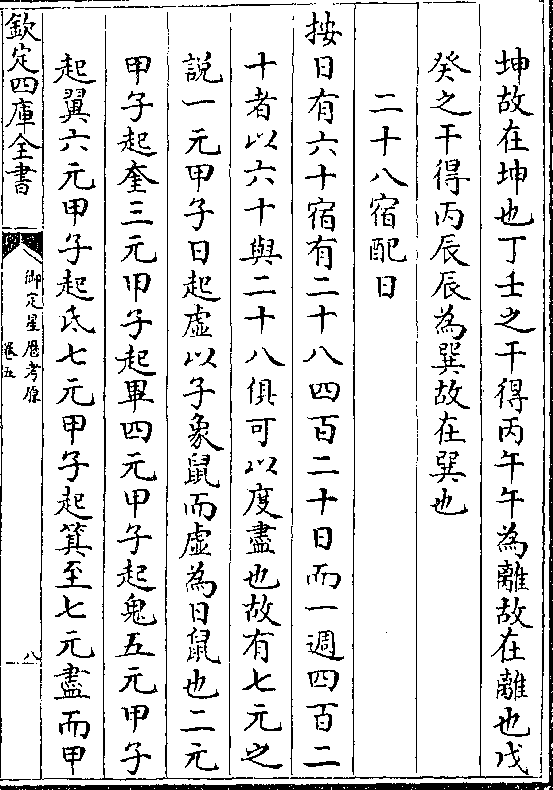 坤故在坤也丁壬之干得丙午午為離故在離也戊
癸之干得丙辰辰為巽故在巽也
二十八宿配日
按日有六十宿有二十八四百二十日而一週四百二
十者以六十與二十八俱可以度盡也故有七元之
說一元甲子日起虛以子象鼠而虛為日鼠也二元
甲子起奎三元甲子起畢四元甲子起鬼五元甲子
起翼六元甲子起氐七元甲子起箕至七元盡而甲
欽定四庫全書
御定星歷考原
卷五
八